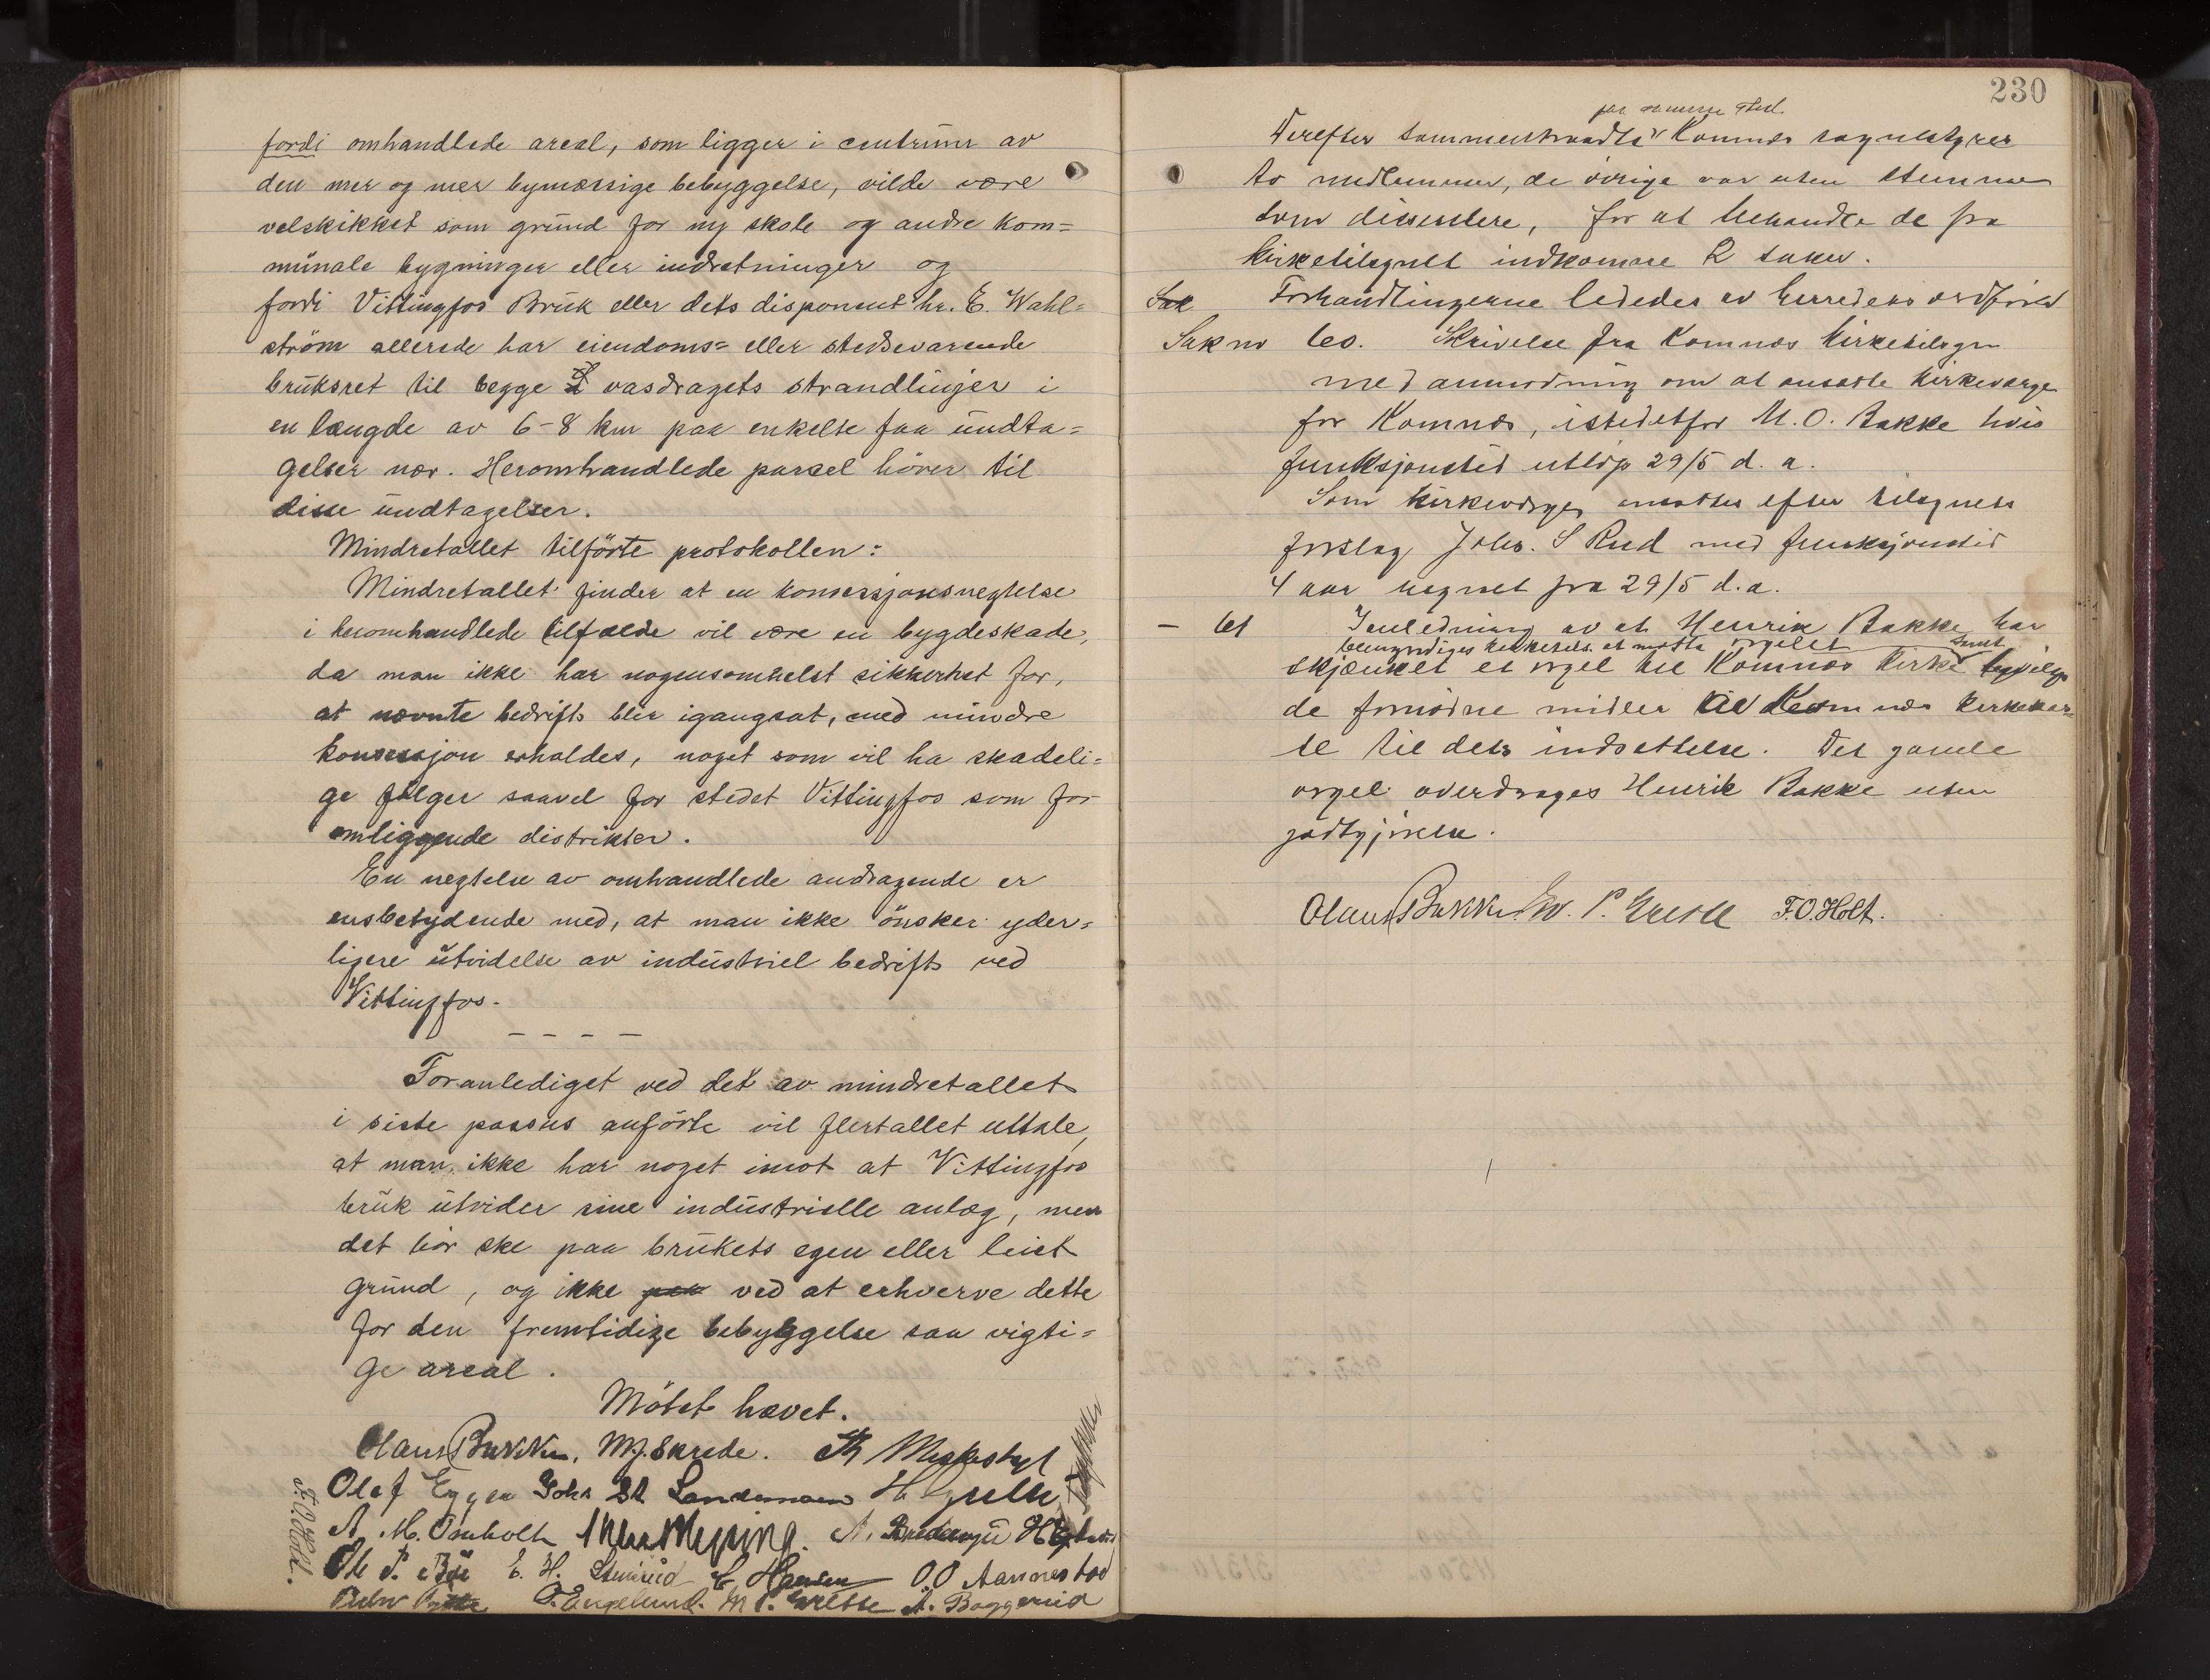 fordi omhandlede areal, som ligger i centrum av
den mer og mer bymæssige bebyggelse, vilde være
velskikket som grund for ny skole og andre kom=
munale bygninger eller indretninger og
fordi Vittingfos Bruk eller dets disponent hr. E. Wahl=
ström allerede har eiendoms= eller stedsevarende
bruksret til begge vasdragets strandlinjer i
en længde av 6-8 km paa enkelte faa undta=
gelser nær. Heromhandlede parcel hörer til
disse undtagelser.
Mindretallet tilförte protokollen:
Mindretallet finder at en konsessjonsnegtelse
i heromhandlede tilfælde vil være en bygdeskade,
da man ikke har nogensomhelst sikkerhet for,
at nævnte bedrift blir igangsat, med mindre
konsessjon erholdes, noget som vil ha skadeli=
ge fölger saavel for stedet Vittingfos som for
omliggende distrikter.
En negtelse av omhandlede andragende er
ensbetydende med, at man ikke önsker yder=
ligere utvidelse av industriel bedrift ved
Vittingfos.
- - - -
Foranlediget ved det av mindretallet
i siste passus anförte vil flertallet uttale,
at man ikke har noget imot at Vittingfos
bruk utvider sine industrielle anlæg, men
det bör ske paa brukets egen eller leiet
grund, og ikke ved at erhverve dette
for den fremtidige bebyggelse saa vigti=
ge areal.
Mötet hævet.
Olaus Bakken. M.J. Skrede. Th
Olaf Johs
A. M. Omholt A.
Ole P. Bøe E. H. Stensrud O.O Aannestad
O. Engelund. M P. Grette A. Baggerud
F.O. Holt.
230
paa samme sted
Derefter sammentraadte Komnes sognestyres
to medlemmer, de övrige var uten stemme
som dissentere, for at behandle de fra
kirketilsynet indkomne 2 saker.
Sak Forhandlingerne lededes av herredets ordförer
Sak nr 60. Skrivelse fra Komnes kirketilsyn
med anmodning om at ansætte kirkeverge
for Komnes, istedetfor M. O. Bakke hvis
funksjonstid utlöp 29/5 d. a.
Som kirkeverge ansattes efter tilsynets
forslag Johs. S Rud med funksjonstid
4 aar regnet fra 29/5 d.a.
- 61 I anledning av at Henrik Bakke har
bemyndiges kirketils. at motta orgelet samt
skjænket et orgel til Komnes kirke bevilges
de fornödne midler til Komnes kirkekas=
se til dets indsættelse. Det gamle
orgel overdrages Henrik Bakke uten
godtgjörelse.
Olaus Bakken M. P. Grette F.O. Holt.